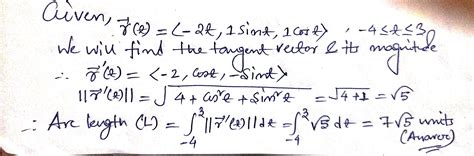 Given, r⃗(t) = <-2t, 1 Sint, 1 Cost> , -4≤t≤3
We will find the tangent vector & its magnitude
∴ r⃗'(t) = <-2, Cost, -Sint>
||r⃗'(t)|| = √(4 + Cos²t + Sin²t) = √(4+1) = √5
∴ Arc length (L) = ∫₋₄³ ||r⃗'(t)|| dt = ∫₋₄³ √5 dt = 7√5 units
(Answer)